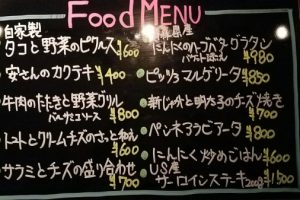 Food MENU
自家製
タコと野菜のピクルス ¥600
安さんのカクテキ ¥400
牛肉のたたきと野菜グリル
バルサミコソース ¥800
トマトとクリームチーズのさっと和え ¥600
サラミとチーズの盛り合わせ ¥700
産
にんにくのハーブバターグラタン
バゲット ¥980
ピッツァマルゲリータ ¥850
新じゃがと明太子のチーズ焼き ¥700
ペンネアラビアータ ¥800
にんにく炒めごはん ¥600
US産
サーロインステーキ 200g ¥1500